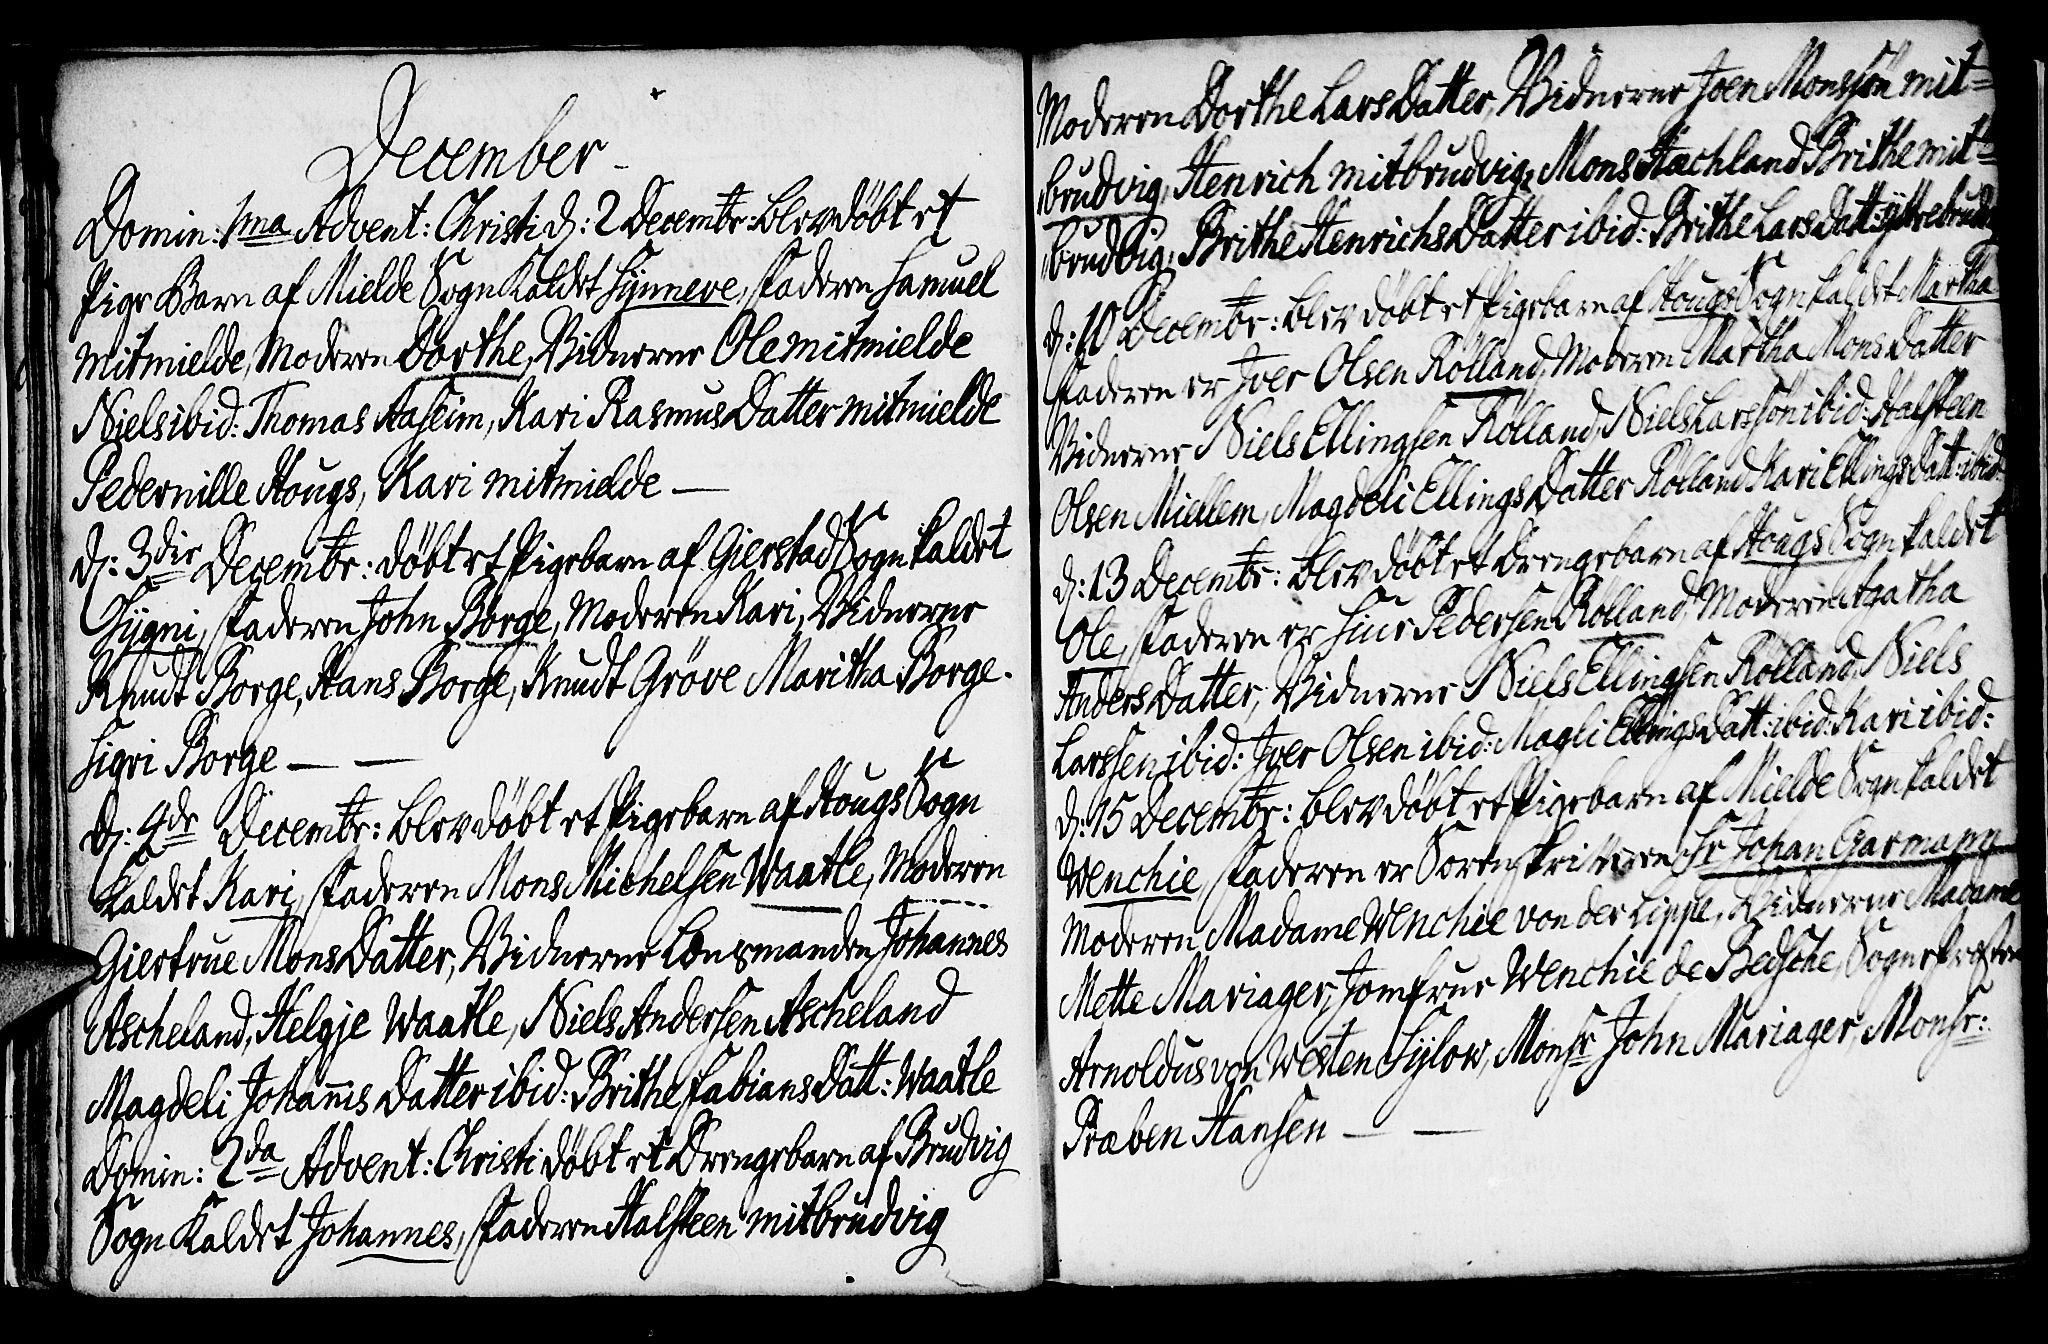 December
Domin: 1ma Advent: Christi d: 2 Decembr: blev døbt et
Pige Barn af Mielde Sogn Kaldet Synneve, Faderen Samuel
Mitmielde, Moderen Dorthe, Vidnerne Ole mitmielde
Niels ibid: Thomas Aaseim, Kari Rasmus Datter mitmielde
Pedernille Hougs, Kari mitmielde —
d: 3die Decembr: døbt et Pigebarn af Gierstad Sogn kaldet
Sygni, Faderen John Borge, Moderen Kari, Vidnerne
Knudt Borge, Hans Borge, Knudt Grøve Maritha Borge.
Sigri Borge — —
d: 4de Decembr: blev døbt et Pigebarn af Hougs Sogn
Kaldet Kari, Faderen Mons Michelsen Waatle, Moderen
Giertrue Mons Datter, Vidnerne Lensmanden Johannes
Ascheland, Helgje Waatle, Niels Andersen Ascheland
Magdeli Johannis Datter ibid: Brithe Fabians Datt: Waatle
Domin: 2da Advent: Christi døbt et Drengebarn af Brudvig
Sogn Kaldet Johannes, Faderen Halsteen mitbrudvig
Moderen Dorthe Lars Datter, Vidnerne Joen Monssøn mit=
brudvig, Henrich mitbrudvig, Mons Hachland Brithe mit=
brudvig, Brithe Henrichs Datter ibid: Brithe Lars Datt: yttrebrudv
d: 10 Decembr: blev døbt et Pigebarn af Hougs Sogn kaldet Martha
Faderen er Iver Olsen Rölland, Moderen Martha Mons Datter
Vidnerne Niels Ellingsen Rölland, Niels Larssön ibid: Halsteen
Olsen Miellem, Magdeli Ellings Datter Rölland Kari Ellings Datt: ibid:
d: 13 Decembr: blev døbt et Drengebarn af Hougs Sogn kaldet
Ole, Faderen er Siur Pedersen Rölland, Moderen Agatha
Anders Datter, Vidnerne Niels Ellingsen Rölland, Niels
Larssen ibid: Iver Olsen ibid: Magli Ellings Datt: ibid: Kari ibid:
d: 15 Decembr: blev døbt et Pigebarn af Mielde Sogn kaldet
Wenchie, Faderen er Sorenskriveren Sr Johan Garmann
Moderen Madame Wenchie von der Lippe, Vidnerne Madame
Mette Mariager, Jomfrue Wenchie de Besche, Sognepresten
Arnoldus von Westen Sylow, Monsr John Mariager, Monsr:
Præben Hansen — —